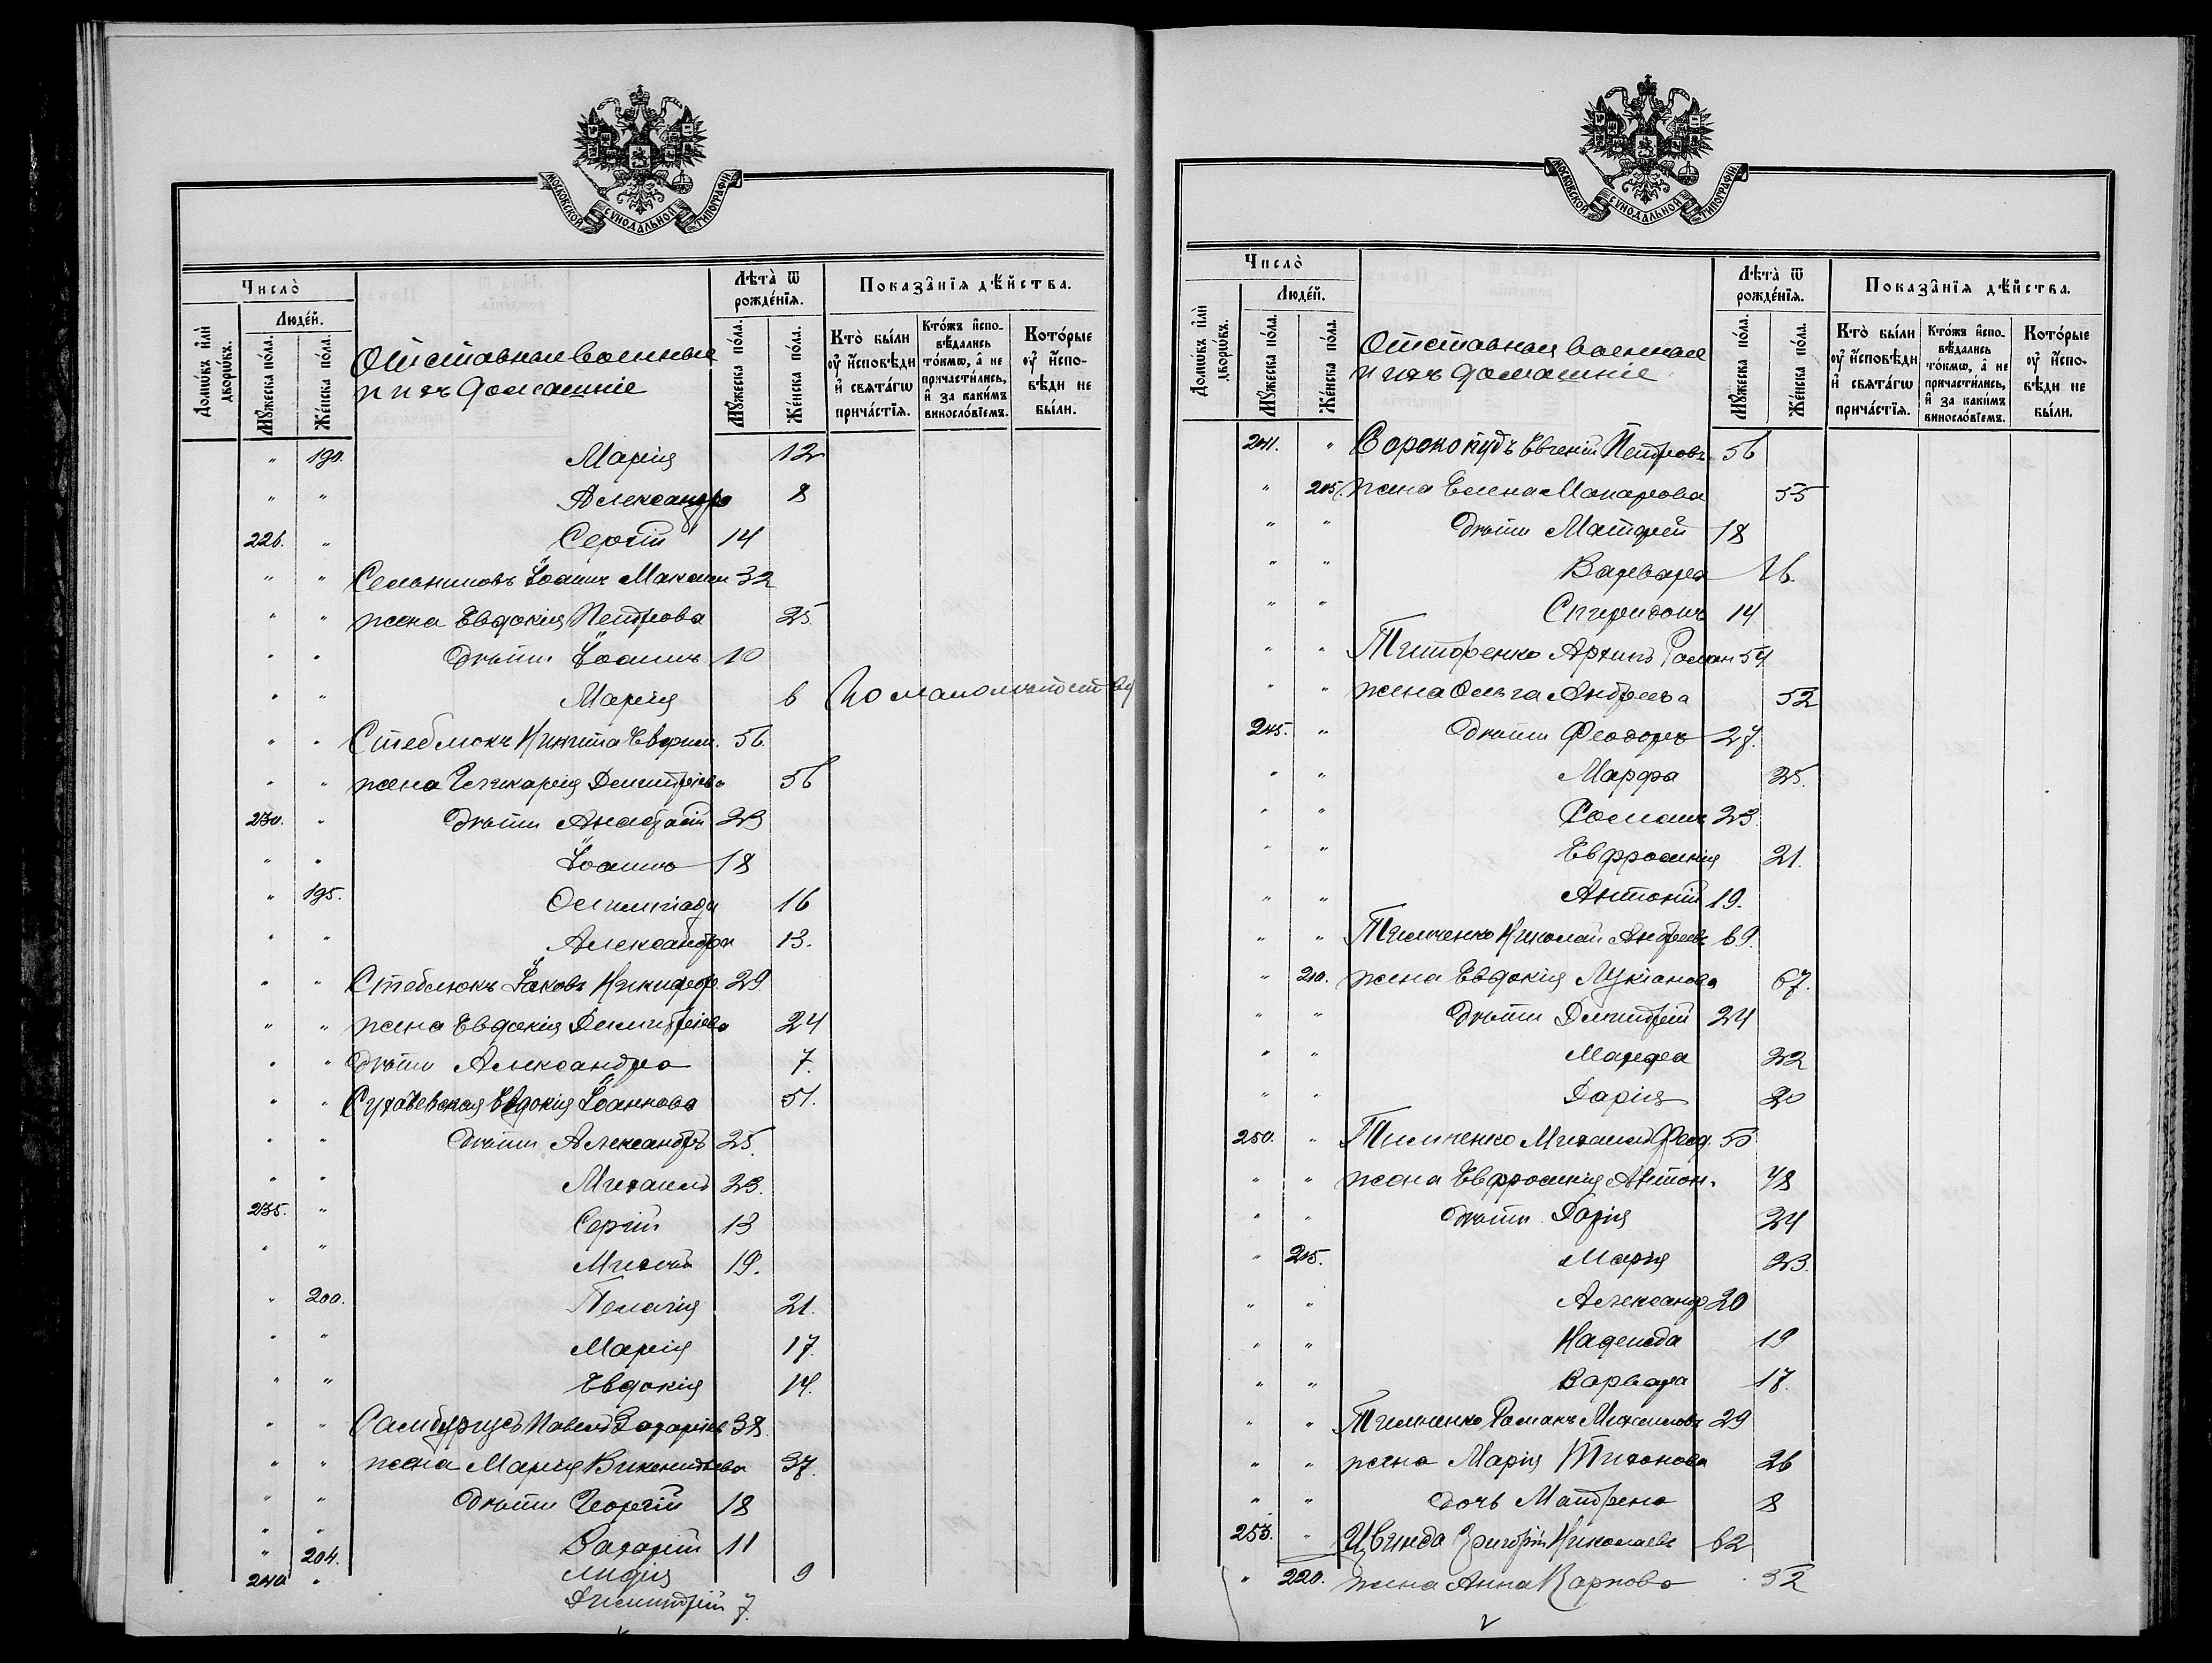 МОСКОВСКОЙ СУНОДАЛЬНОЙ ТИПОГРАФІИ
Число̀
Домѡвъ и҆лѝ дворѡвъ.
Люде́й.
Мꙋ́жеска по́ла.
Же́нска по́ла.
Отставные военные
и ихъ домашніе
Лѣта̀ ѿ рожде́нїѧ.
Мꙋ́жеска по́ла.
Же́нска по́ла.
Показа̑нїѧ дѣ́йства.
Кто̀ бы́ли ᲂу҆ и҆́сповѣди и҆ свѧта́гѡ прича́стїѧ.
Кто́жъ и҆спо-вѣ́дались то́кмѡ, а҆ не причасти́лись, и҆ за каки́мъ винослоо́вїемъ.
Кото́рые ᲂу҆ и҆́спо-вѣди не бы́ли.
" 190. Марія 12
" " Александра 8
226. " Сергій 14
" " Семениновъ Іоаннъ Максим 32
" " жена Евдокія Петрова 25.
" " Дѣти Іоаннъ 10
" " Марія 6 По малолѣтству
" " Стеблюкъ Никита Евфим. 56.
" " жена Гликерія Димитріева 56
230. " Дѣти Анастасій 23
" " Іоаннъ 18
" 195. Олимпіада 16
" " Александра 13.
" " Стеблюкъ Іаковъ Никифор. 29
" " жена Евдокія Димитріева 24
" " Дѣти Александра 7.
" " Евдокія Іоаннова 51.
" " Дѣти Александръ 25.
" " Михаилъ 23.
235. " Сергій 13
" " 19.
" 200. Пелагія 21.
" " Марія 17.
" " Евдокія 14.
" " Самбурцъ Павелъ Захаріев 38.
" " жена Марія Викентьева 37.
" " Дѣти Георгій 18
" " Захарій 11
" 204. Лидія 9
240 " Димитрій 7.
МОСКОВСКОЙ СУНОДАЛЬНОЙ ТИПОГРАФІИ
Число̀
Домѡвъ и҆лѝ дворѡвъ.
Люде́й.
Мꙋ́жеска по́ла.
Же́нска по́ла.
Отставные военные
и ихъ домашніе
Лѣта̀ ѿ рожде́нїѧ.
Мꙋ́жеска по́ла.
Же́нска по́ла.
Показа̑нїѧ дѣ́йства.
Кто̀ бы́ли ᲂу҆ и҆́сповѣди и҆ свѧта́гѡ прича́стїѧ.
Кто́жъ и҆спо-вѣ́дались то́кмѡ, а҆ не причасти́лись, и҆ за каки́мъ винослоо́вїемъ.
Кото́рые ᲂу҆ и҆́спо-вѣди не бы́ли.
241. " Сорокопудъ Евгеній Петровъ 56
" 205. жена Елена Макарова 55
" " Дѣти Матфей 18
" " Варвара 16.
" " Спиридонъ 14
" " Титоренко Архипъ Роман 54
" " жена Ольга Андреева 52
245. " Дѣти Феодоръ 27.
" " Марфа 25.
" " Романъ 23.
" " Евфросинія 21.
" " Антоній 19.
" " Тимченко Николай Андреевъ 69.
" 210. жена Евдокія Лукіанова 67.
" " Дѣти Димитрій 24
" " Марфа 22
" " Дарія 20
250. " Тимченко Михаилъ Феод. 55
" " жена Евфросинія Антон. 48
" " Дѣти Дарія 24
" 215. Марія 23.
" " Александ 20
" " Надежда 19
" " Варвара 17.
" " Тимченко Романъ Михаиловъ 29
" " жена Марія Тихонова 26
" " Дочь Матрена 8
253. " Цвинда Григорій Николаевъ 62
" 220. жена Анна Карпова 52